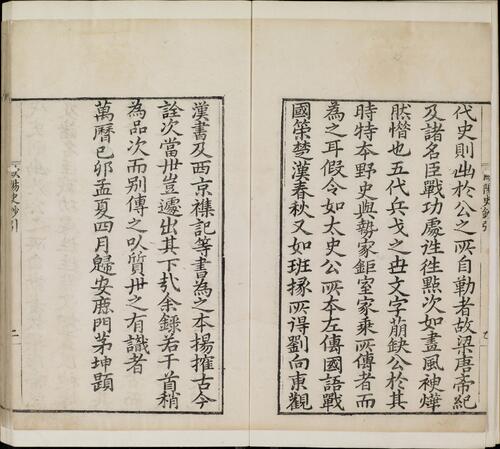 代史則出於公之所自勒者故梁唐帝紀
及諸名臣戰功處往往點次如畫風神燁
然惜也五代兵戈之世文字崩缺公於其
時特本野史與勢家鉅室家乘所傳者而
為之耳假令如太史公所本左傳國語戰
國策楚漢春秋又如班掾所得劉向東觀
漢書及西京襍記等書為之本揚搉古今
詮次當世豈遽出其下哉余錄若干首稍
為品次而別傳之以質世之有識者
萬曆己卯孟夏四月歸安鹿門茅坤題
陽史鈔引
二